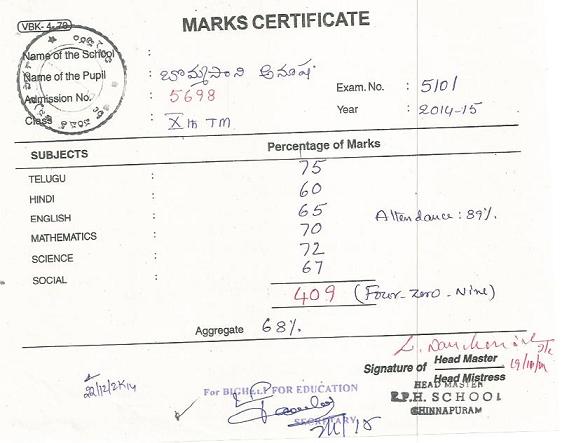 VBK-4-79
MARKS CERTIFICATE
Name of the School :
Name of the Pupil : బొమ్మసాని అనూష
Exam. No. : 5101
Admission No. : 5698
Year : 2014-15
Class : Xth TM
SUBJECTS Percentage of Marks
TELUGU : 75
HINDI : 60
ENGLISH : 65
Attendance : 89%.
MATHEMATICS : 70
SCIENCE : 72
SOCIAL : 67
409 (Four-Zero-Nine)
Aggregate 68%.
Signature of Head Master
Head Mistress
22/12/2K14
For BIGHELP FOR EDUCATION
SECRETARY
HEAD MASTER
Z.P.H. SCHOOL
CHINNAPURAM